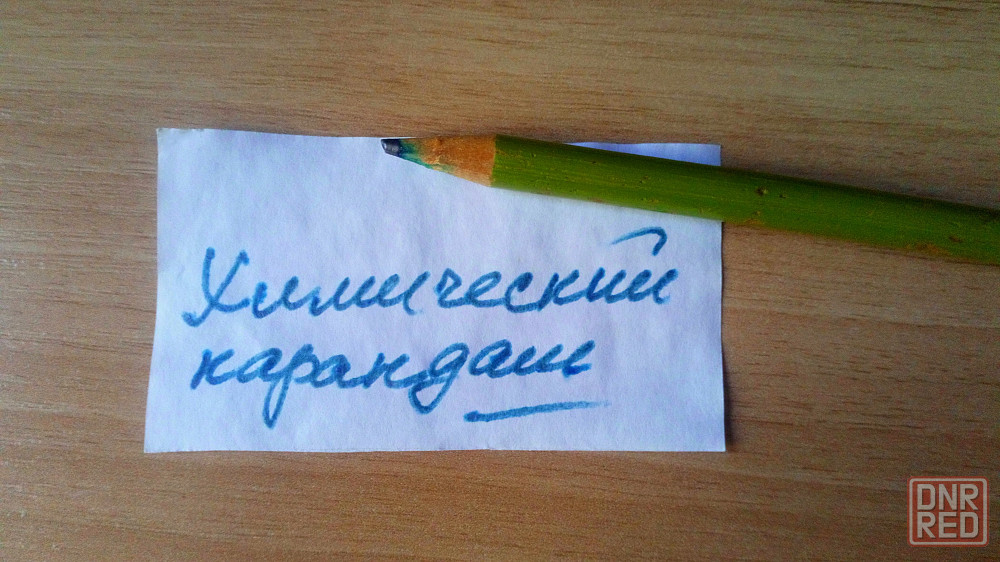 Химический
карандаш
DNR
RED